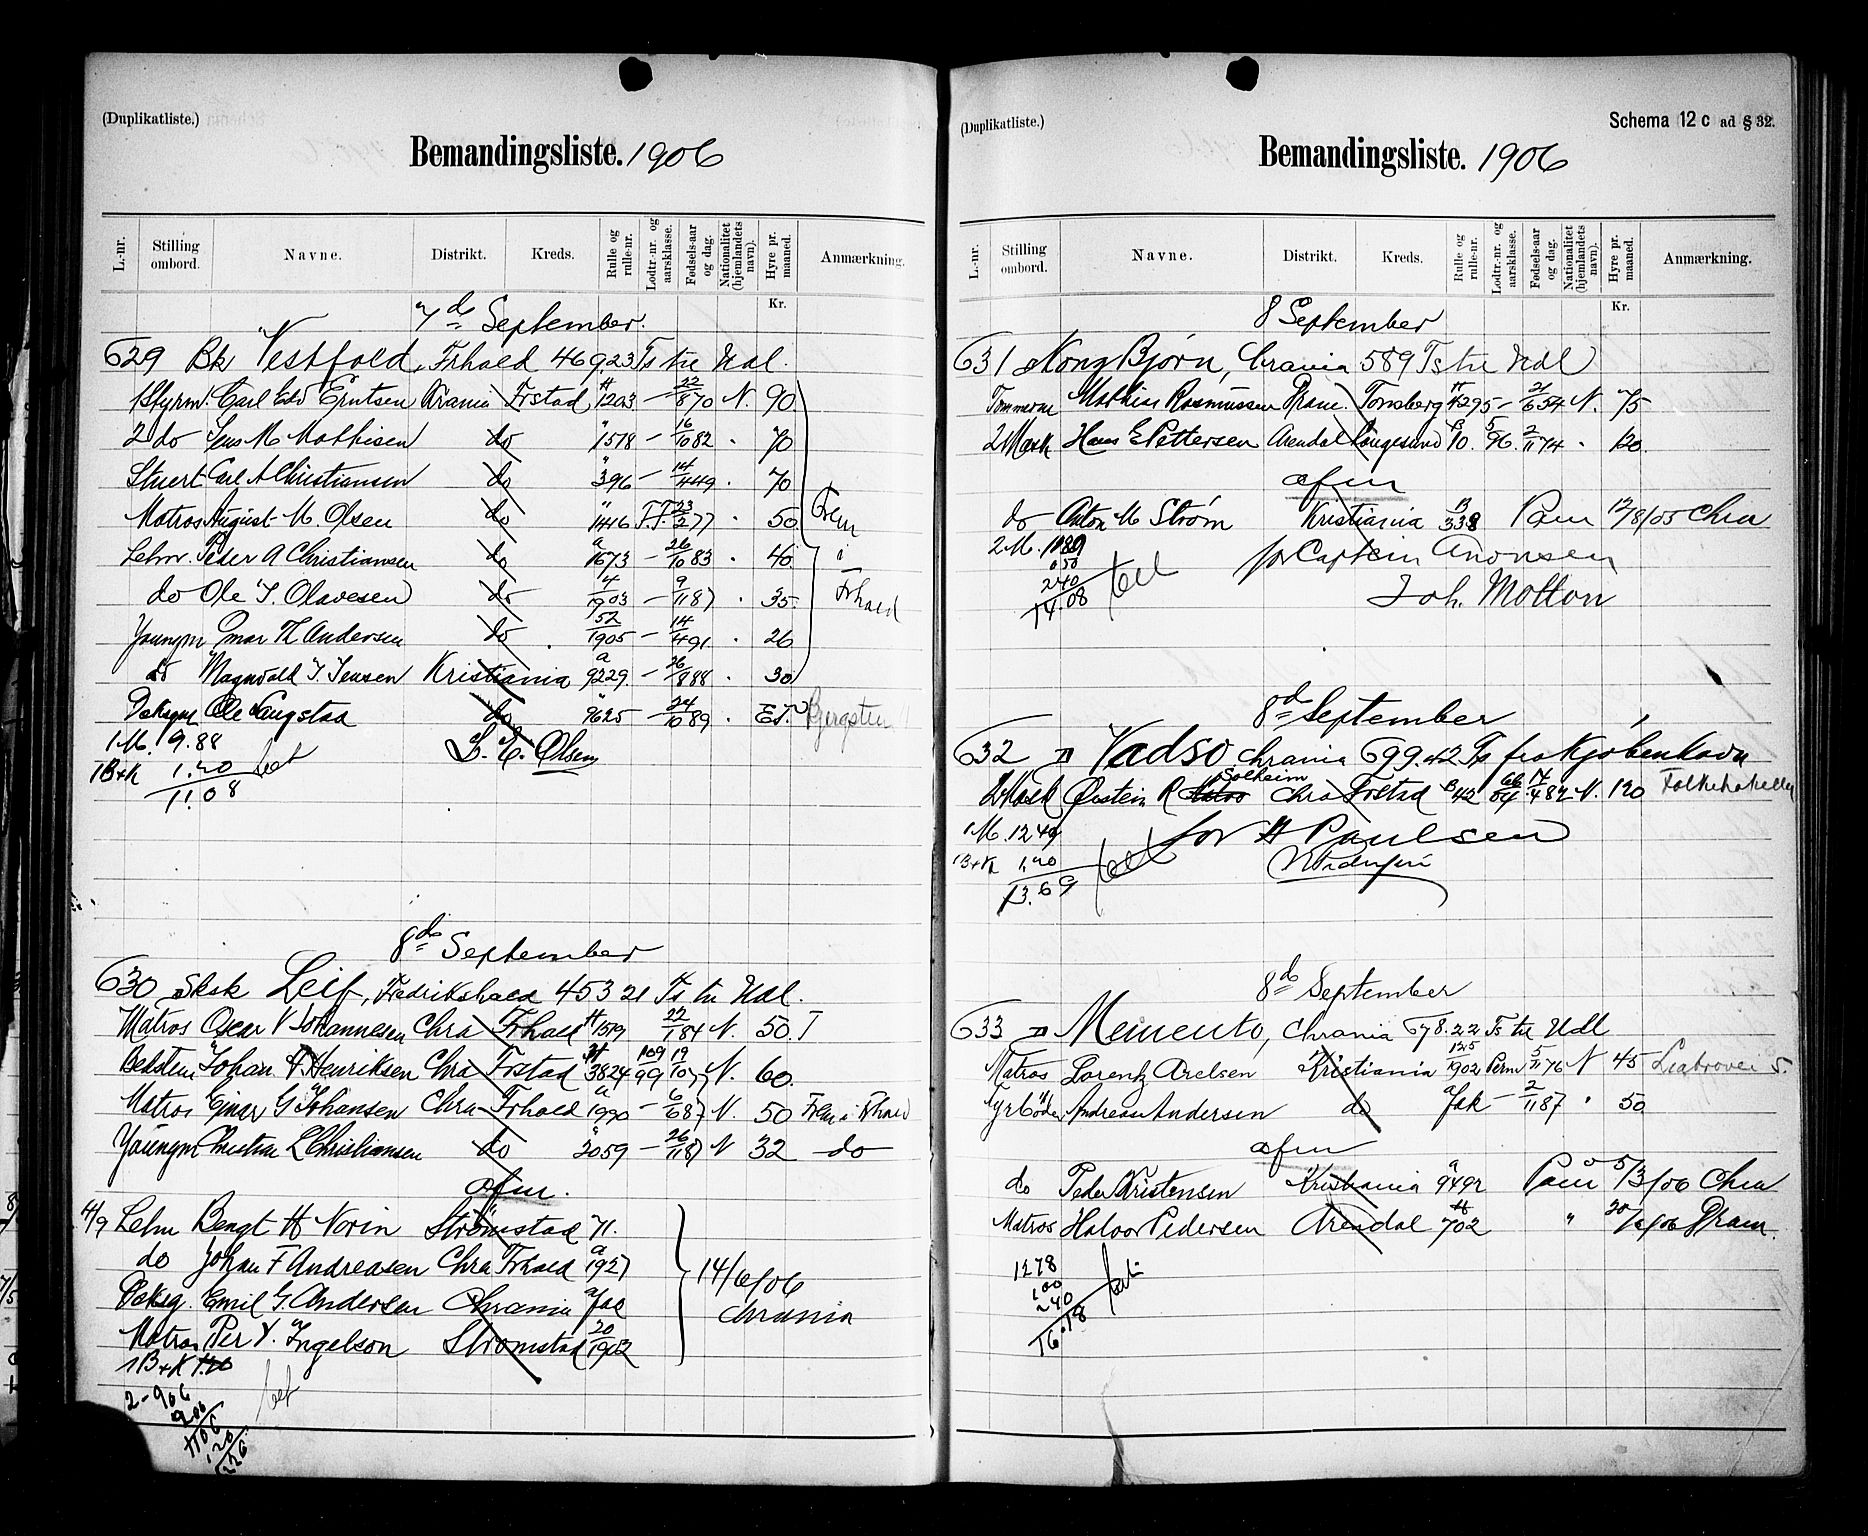 (Duplikatliste.)
Bemandingsliste. 1906
L.-nr. Stilling ombord. Navne. Distrikt. Kreds. Rulle og rulle-nr. Lodtr.-nr. og aarsklasse. Fødsels-aar og dag. Nationalitet (hjemlandets navn). Hyre pr. maaned. Anmærkning.
Kr.
7de September.
629 Bk Vestfold, Frhald 46923 Ts til Udl.
1Styrm. Carl Edv Erntsen Krania Frstad 1203 — 22/8 70 N. 90
2 do Jens M Mathisen do 1578 — 16/10 82 . 70
Stuert Carl A Christiansen do 396 — 14/4 49 . 70
Matros August M. Olsen do 1446 F.F. 23/2 77 . 50 Frem
Letm. Peder A Christiansen do 1673 — 26/10 83 . 40 i
do Ole J. Olavesen do 4/1903 — 9/11 87 . 35 Frhald
Youngm Einar Th Andersen do 52/1905 — 14/4 91 . 26
do Magnvald J. Jensen Kristiania 9229 — 26/8 88 . 30
Deksgut Ole Haugstad do 9625 — 24/10 89 .
1M. 9.88 bet
L. C. Olsen
1B+K 1.20
11.08
8de September
630 Sksk Leif, Fredrikshald 453 21 Ts til Udl.
Matros Oscar V Johannesen Chra Frhald 1519 22/1 84 N. 50.
Bedstem Johan A. Henriksen Chra Frstad 3824 109/99 19/10 77 N. 60.
Matros Einar G Johansen Chra Frhald 1990 — 6/6 87 N. 50 Frem i Frhald
Youngm Christian L Christiansen do 2059 — 26/11 87 N 32 do
afm.
4/9 Letm Bengt H Norin Strömstad 71.
do Johan F Andreasen Chra Frhald 1927 14/6/06
Deksg. Emil G. Andersen Chrania Jak Chrania
Matros Per Y. Ingelson Stromstad 20/1902
1B+K 1.20
2-906 bet
(Duplikatliste.) Schema 12 c ad § 32.
Bemandingsliste. 1906
L.-nr. Stilling ombord. Navne. Distrikt. Kreds. Rulle og rulle-nr. Lodtr.-nr. og aarsklasse. Fødsels-aar og dag. Nationalitet (hjemlandets navn). Hyre pr. maaned. Anmærkning.
Kr.
8 September
631 Kong Bjørn, Chrania 589 Ts til Udl
Tømmerm Mathias Rasmussen Dram. Tonsberg 4295 — 21/6 54 N. 75
2Mask Hans E Pettersen Arendal Langesund 10. 5/96. 2/11 74 . 120.
afm
do Anton M Strøm Kristiania 338 Pam 12/8/05 Chra
2 M. 1089 for Captein Aronsen
050
240 bet Joh. Molton
14.08
8de September
632 D Vadsø Chrania 699.42 Ts fra Kjøbenhavn
2Mask Øistein R Solheim Chra Frstad 42 66/04. 17/4 82 N. 120
1 M. 1249 for H Paulsen
1B+K 1.20 bet
13.69
8de September
633 D Memento, Chrania 678.22 Ts til Udl
Matros Lorentz Axelsen Kristiania 125/1902 Perm 5/11 76 N 45
Fyrbøder Andreas Andersen do Jak — 2/11 87 " 50
afm
do Peder Kristensen Kristiania 9492 Pam 5/3/00 Chra
Matros Halvor Pedersen Arendal 702 " 20/6/06 Dram.
1278 bet
100
240
16.18